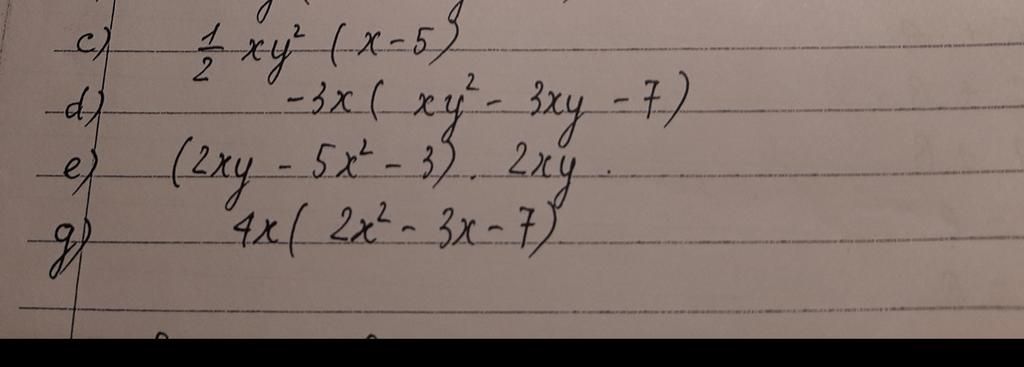 c) 1/2 xy² (x-5)
d) -3x( xy² - 3xy - 7)
e) (2xy - 5x² - 3). 2xy.
g) 4x( 2x² - 3x - 7)